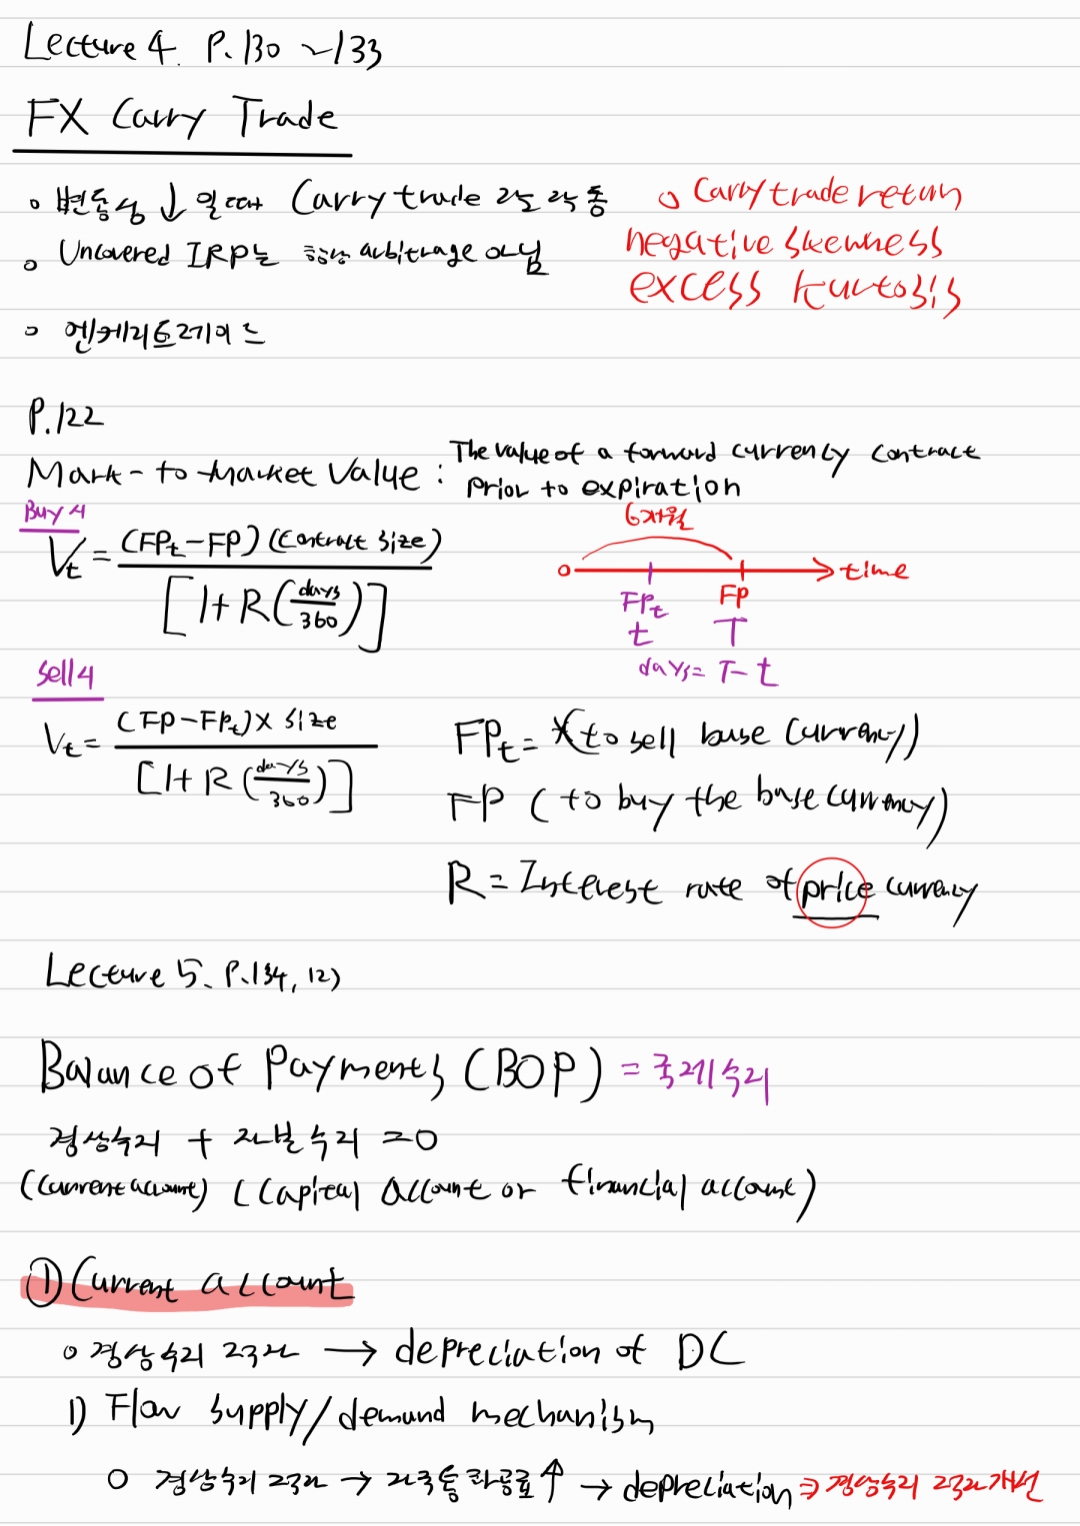 Lecture 4. P.130 ~133
FX Carry Trade
변동성 ↓ 일때 Carry trade 잘 작동
Carry trade return
negative skewness
excess kurtosis
Uncovered IRP는 항상 arbitrage 아님
엔케리트레이드
P.122
Mark-to-Market Value : The value of a forward currency contract
prior to expiration
Buy시
Vt = (FPt-FP)(Contract size) / [1+R(days/360)]
6개월
0 → time
FPt FP
t T
days = T-t
Sell시
Vt = (FP-FPt)× size / [1+R(days/360)]
FPt = *(to sell base currency)
FP (to buy the base currency)
R = Interest rate of price currency
Lecture 5. P.134, 12)
Balance of Payments (BOP) = 국제수지
경상수지 + 자본수지 =0
(Current account) (Capital Account or financial account)
① Current account
경상수지 적자 → depreciation of DC
1) Flow supply/demand mechanism
경상수지 적자 → 자국통화공급↑ → depreciation ⇒ 경상수지 적자개선